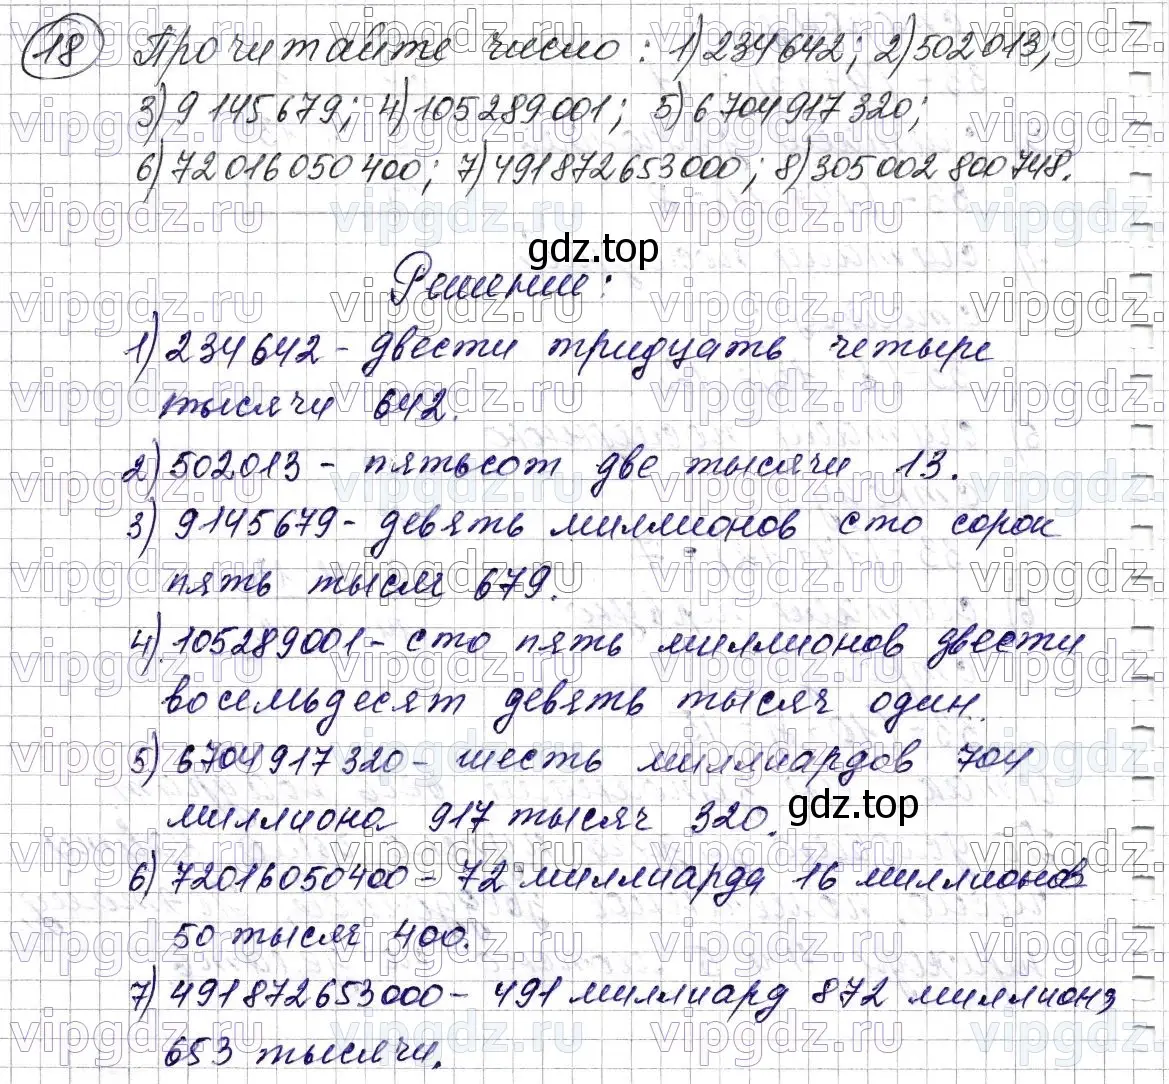 18 Прочитайте число: 1) 234 642; 2) 502 013;
3) 9 145 679; 4) 105 289 001; 5) 6 704 917 320;
6) 72 016 050 400; 7) 491 872 653 000; 8) 305 002 800 748.
gdz.top
Решение:
1) 234 642 - двести тридцать четыре
тысячи 642.
2) 502 013 - пятьсот две тысячи 13.
3) 9145679 - девять миллионов сто сорок
пять тысяч 679.
4) 105289001 - сто пять миллионов двести
восемьдесят девять тысяч один.
5) 6704 917 320 - шесть миллиардов 704
миллиона 917 тысяч 320.
gdz.top
6) 72016050400 - 72 миллиарда 16 миллионов
50 тысяч 400.
7) 491872653000 - 491 миллиард 872 миллиона
653 тысячи.